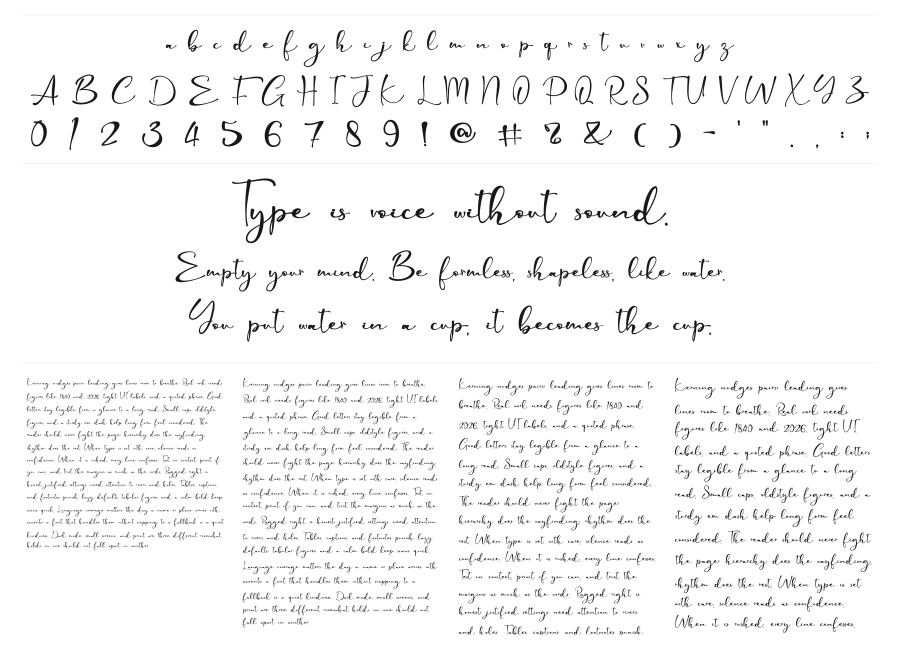 a b c d e f g h i j k l m n o p q r s t u v w x y z
A B C D E F G H I J K L M N O P Q R S T U V W X Y Z
0 1 2 3 4 5 6 7 8 9 ! @ # & & ( ) - ' " . , : ;
Type is voice without sound.
Empty your mind. Be formless, shapeless, like water.
You put water in a cup, it becomes the cup.
Kerning nudges pairs leading gives lines room to breathe. Real work needs
figures like 1840 and 2026, tight UI labels, and a quoted phrase. Good
letters stay legible from a glance to a long read. Small caps, oldstyle
figures, and a sturdy em dash help long form feel considered. The
reader should never fight the page hierarchy does the wayfinding,
rhythm does the rest. When type is set with care, silence reads as
confidence. When it is rushed, every line confesses. Test in context, print if
you can, and trust the margins as much as the words. Ragged right is
honest justified settings need attention to rivers and holes. Tables captions
and footnotes punish lazy defaults tabular figures and a calm bold keep
rows quiet. Language coverage matters the day a name or place arrives with
accents a font that handles them without swapping to a fallback is a quiet
kindness. Dark mode, small screens, and print are three different somewhat
holds in one should not fall apart in another.
Kerning nudges pairs leading gives lines room to breathe.
Real work needs figures like 1840 and 2026, tight UI labels,
and a quoted phrase. Good letters stay legible from a
glance to a long read. Small caps, oldstyle figures, and a
sturdy em dash help long form feel considered. The reader
should never fight the page hierarchy does the wayfinding,
rhythm does the rest. When type is set with care, silence reads
as confidence. When it is rushed, every line confesses. Test in
context, print if you can, and trust the margins as much as the
words. Ragged right is honest justified settings need attention
to rivers and holes. Tables captions and footnotes punish lazy
defaults tabular figures and a calm bold keep rows quiet.
Language coverage matters the day a name or place arrives with
accents a font that handles them without swapping to a
fallback is a quiet kindness. Dark mode, small screens, and
print are three different somewhat holds in one should not
fall apart in another.
Kerning nudges pairs leading gives lines room to
breathe. Real work needs figures like 1840 and
2026, tight UI labels, and a quoted phrase.
Good letters stay legible from a glance to a
long read. Small caps, oldstyle figures, and a
sturdy em dash help long form feel considered.
The reader should never fight the page
hierarchy does the wayfinding, rhythm does the
rest. When type is set with care, silence reads as
confidence. When it is rushed, every line confesses.
Test in context, print if you can, and trust the
margins as much as the words. Ragged right is
honest justified settings need attention to rivers
and holes. Tables captions and footnotes punish
Kerning nudges pairs leading gives
lines room to breathe. Real work needs
figures like 1840 and 2026, tight UI
labels, and a quoted phrase. Good letters
stay legible from a glance to a long
read. Small caps, oldstyle figures, and a
sturdy em dash help long form feel
considered. The reader should never fight
the page hierarchy does the wayfinding,
rhythm does the rest. When type is set
with care, silence reads as confidence.
When it is rushed, every line confesses.